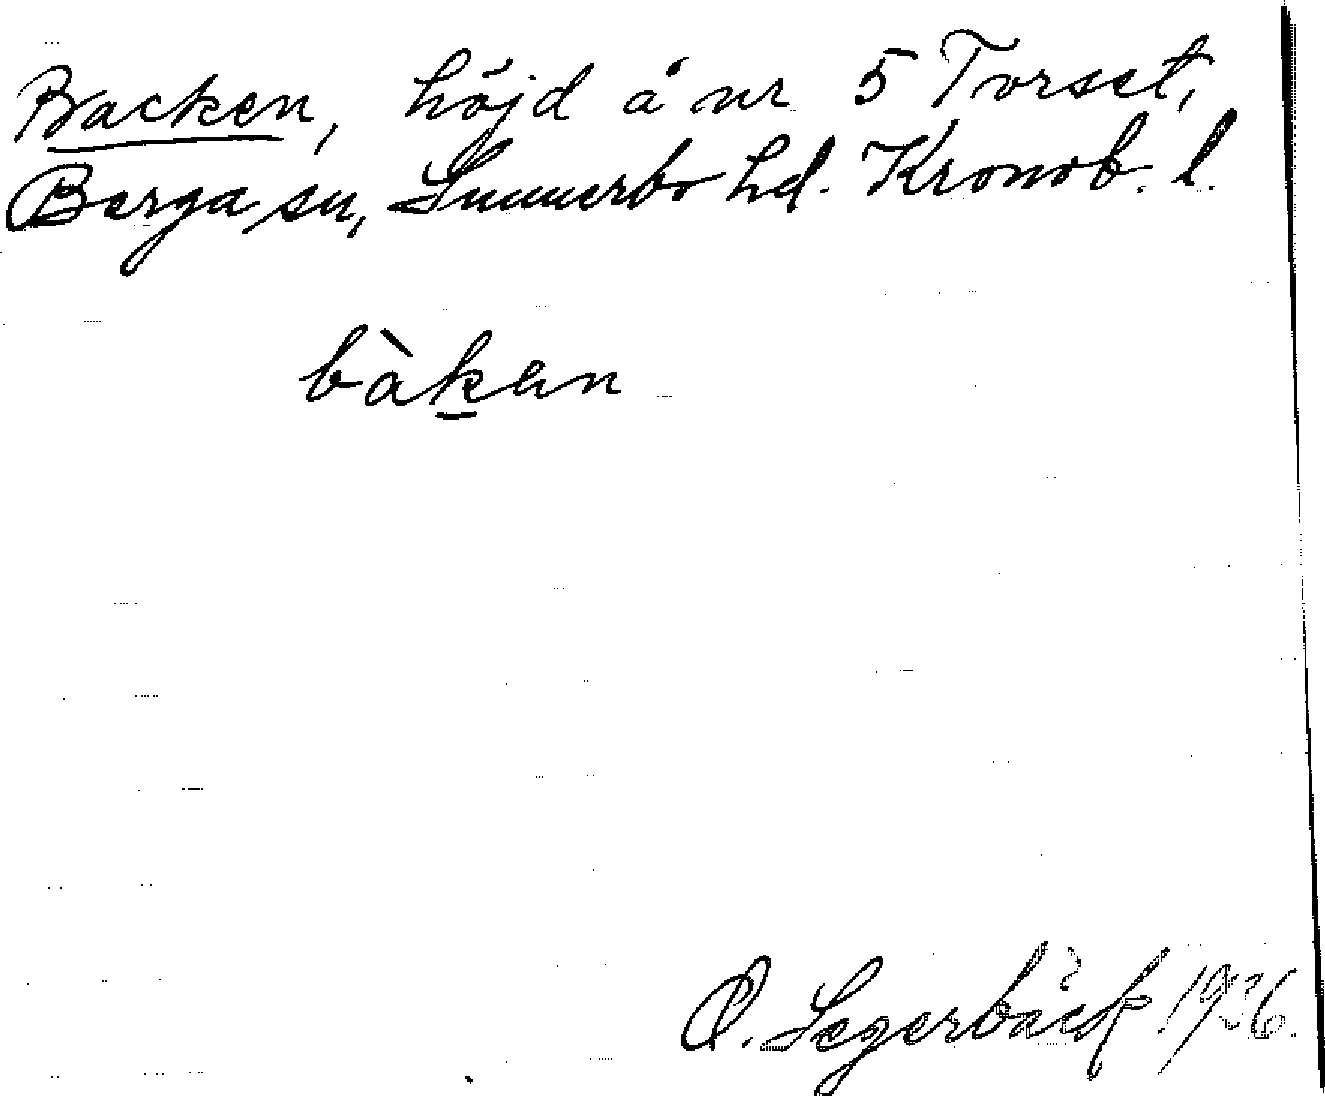 Backen, höjd å nr 5 Torset,
Berga sn, Sunnerbo hd. Kronob. l.
bàken
O. Segerbäck 1936.